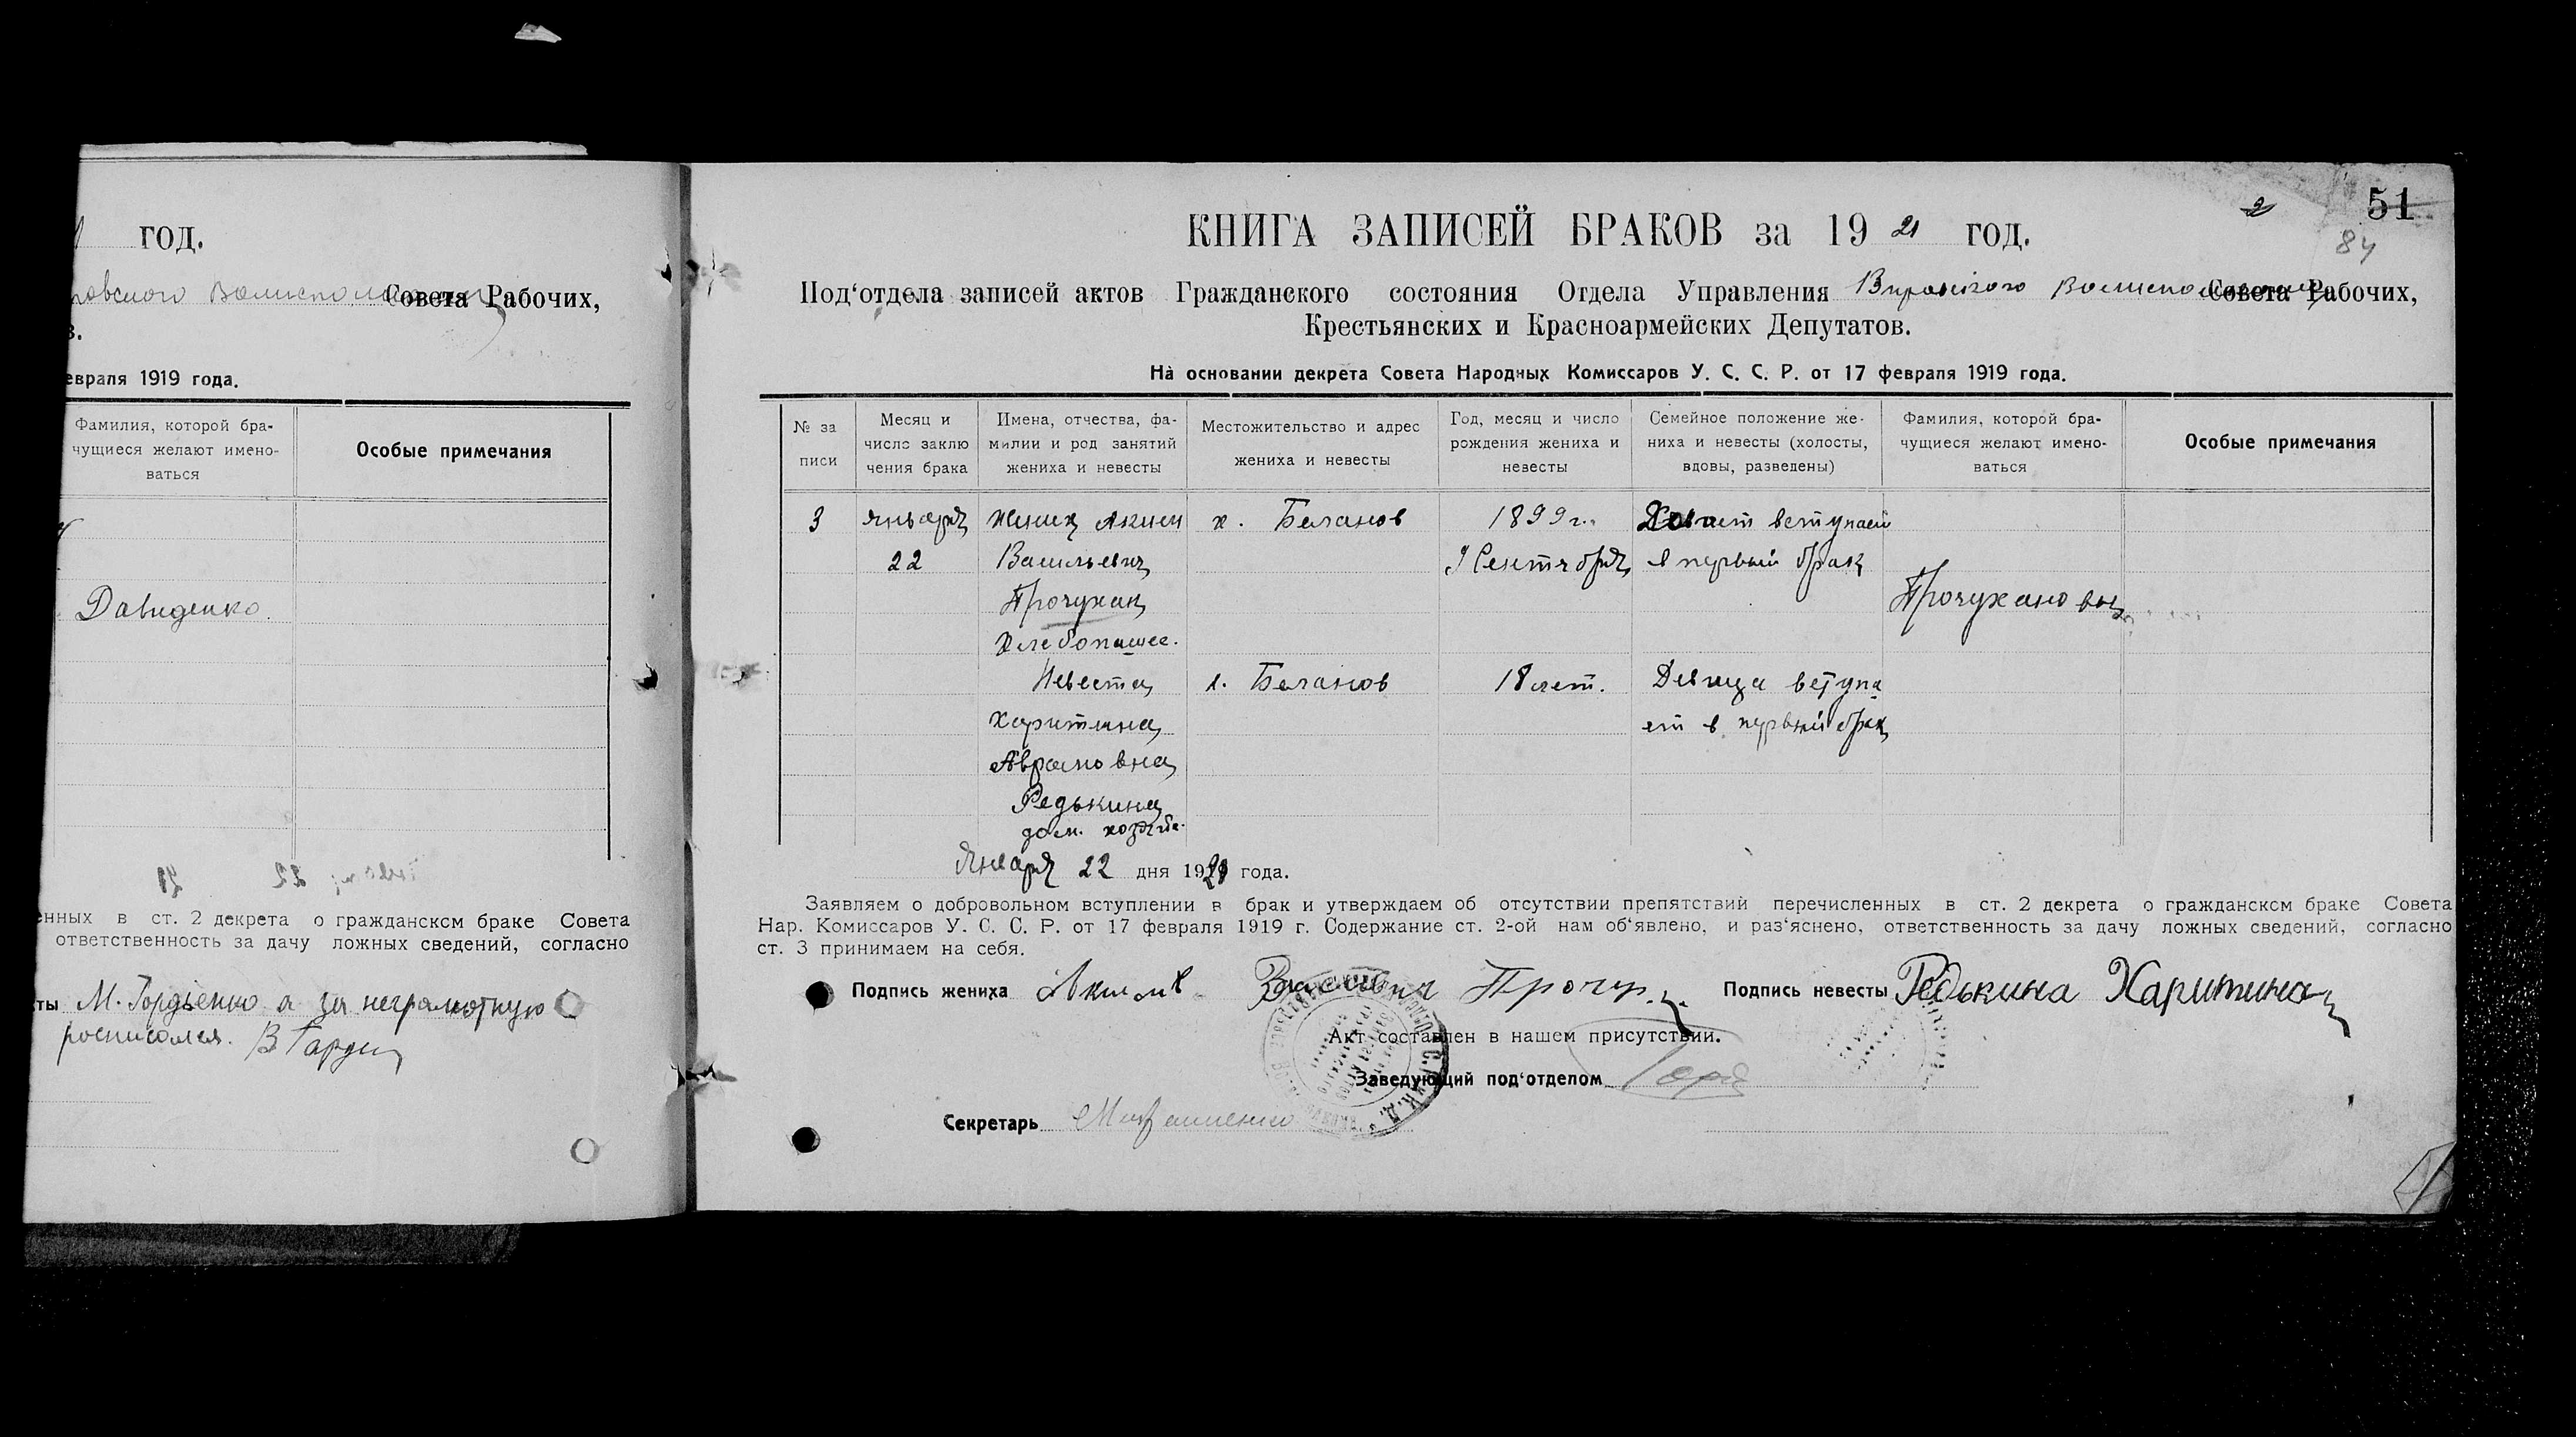 год.
Совета Рабочих,
в.
евраля 1919 года.
Фамилия, которой бра-
чущиеся желают имено-
ваться
Особые примечания
Давиденко.
енных в ст. 2 декрета о гражданском браке Совета
ответственность за дачу ложных сведений, согласно
ты М. Гордіенко а за неграмотную
росписался.
51
2
84
КНИГА ЗАПИСЕЙ БРАКОВ за 19 21 год.
Под‘отдела записей актов Гражданского состояния Отдела Управления Совета Рабочих,
Крестьянских и Красноармейских Депутатов.
На основании декрета Совета Народных Комиссаров У. С. С. Р. от 17 февраля 1919 года.
№ за
писи
Месяц и
число заклю
чения брака
Имена, отчества, фа-
милии и род занятий
жениха и невесты
Местожительство и адрес
жениха и невесты
Год, месяц и число
рождения жениха и
невесты
Семейное положение же-
ниха и невесты (холосты,
вдовы, разведены)
Фамилия, которой бра-
чущиеся желают имено-
ваться
Особые примечания
3
января
22
Жених Аким
Васильевич
Прочухан
Хлебопашес.
х. Баланов
1899 г.
Сентября
вступает
в первый брак
Прочухановы
Невеста
Харитина
Аврамовна
Редькина
дом. хозяйс.
х. Баланов
18 лет.
Девица вступа
ет в первый брак
Января 22 дня 1921 года.
Заявляем о добровольном вступлении в брак и утверждаем об отсутствии препятствий перечисленных в ст. 2 декрета о гражданском браке Совета
Нар. Комиссаров У. С. С. Р. от 17 февраля 1919 г. Содержание ст. 2-ой нам об‘явлено, и раз‘яснено, ответственность за дачу ложных сведений, согласно
ст. 3 принимаем на себя.
Подпись жениха Прочух. Подпись невесты Редькина Харитина
Акт составлен в нашем присутствии.
Заведующий под‘отделом
Секретарь